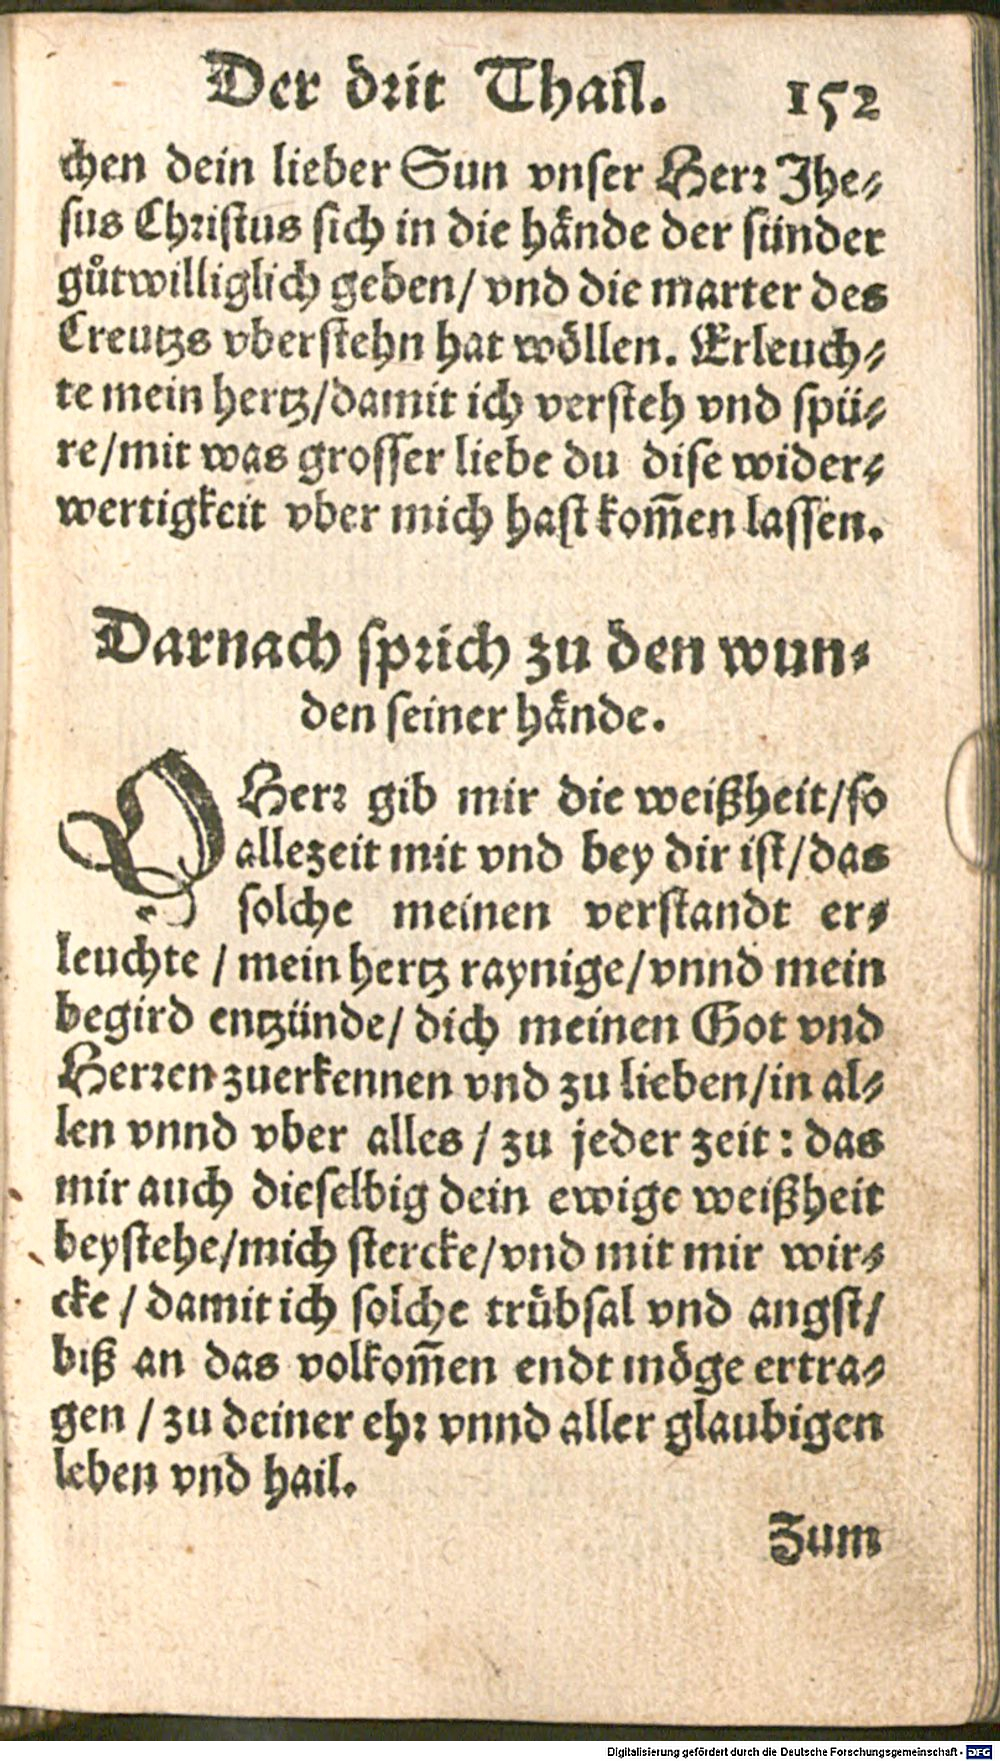 Der drit Thail. 152
chen dein lieber Sun vnser Herr Jhe-
sus Christus sich in die hånde der sünder
gůtwilliglich geben/ vnd die marter des
Creutzs vberstehn hat wöllen. Erleuch-
te mein hertz/damit ich versteh vnd spü-
re/mit was grosser liebe du dise wider-
wertigkeit vber mich hast kom̃en lassen.
Darnach sprich zu den wun-
den seiner hånde.
O Herr gib mir die weißheit/so
allezeit mit vnd bey dir ist/das
solche meinen verstandt er-
leuchte / mein hertz raynige/vnnd mein
begird entzünde/ dich meinen Got vnd
Herren zuerkennen vnd zu lieben/in al-
len vnnd vber alles / zu jeder zeit: das
mir auch dieselbig dein ewige weißheit
beystehe/mich stercke/vnd mit mir wir-
cke / damit ich solche trübsal vnd angst/
biß an das volkom̃en endt möge ertra-
gen / zu deiner ehr vnnd aller glaubigen
leben vnd hail.
Zum
Digitalisierung gefördert durch die Deutsche Forschungsgemeinschaft - DFG